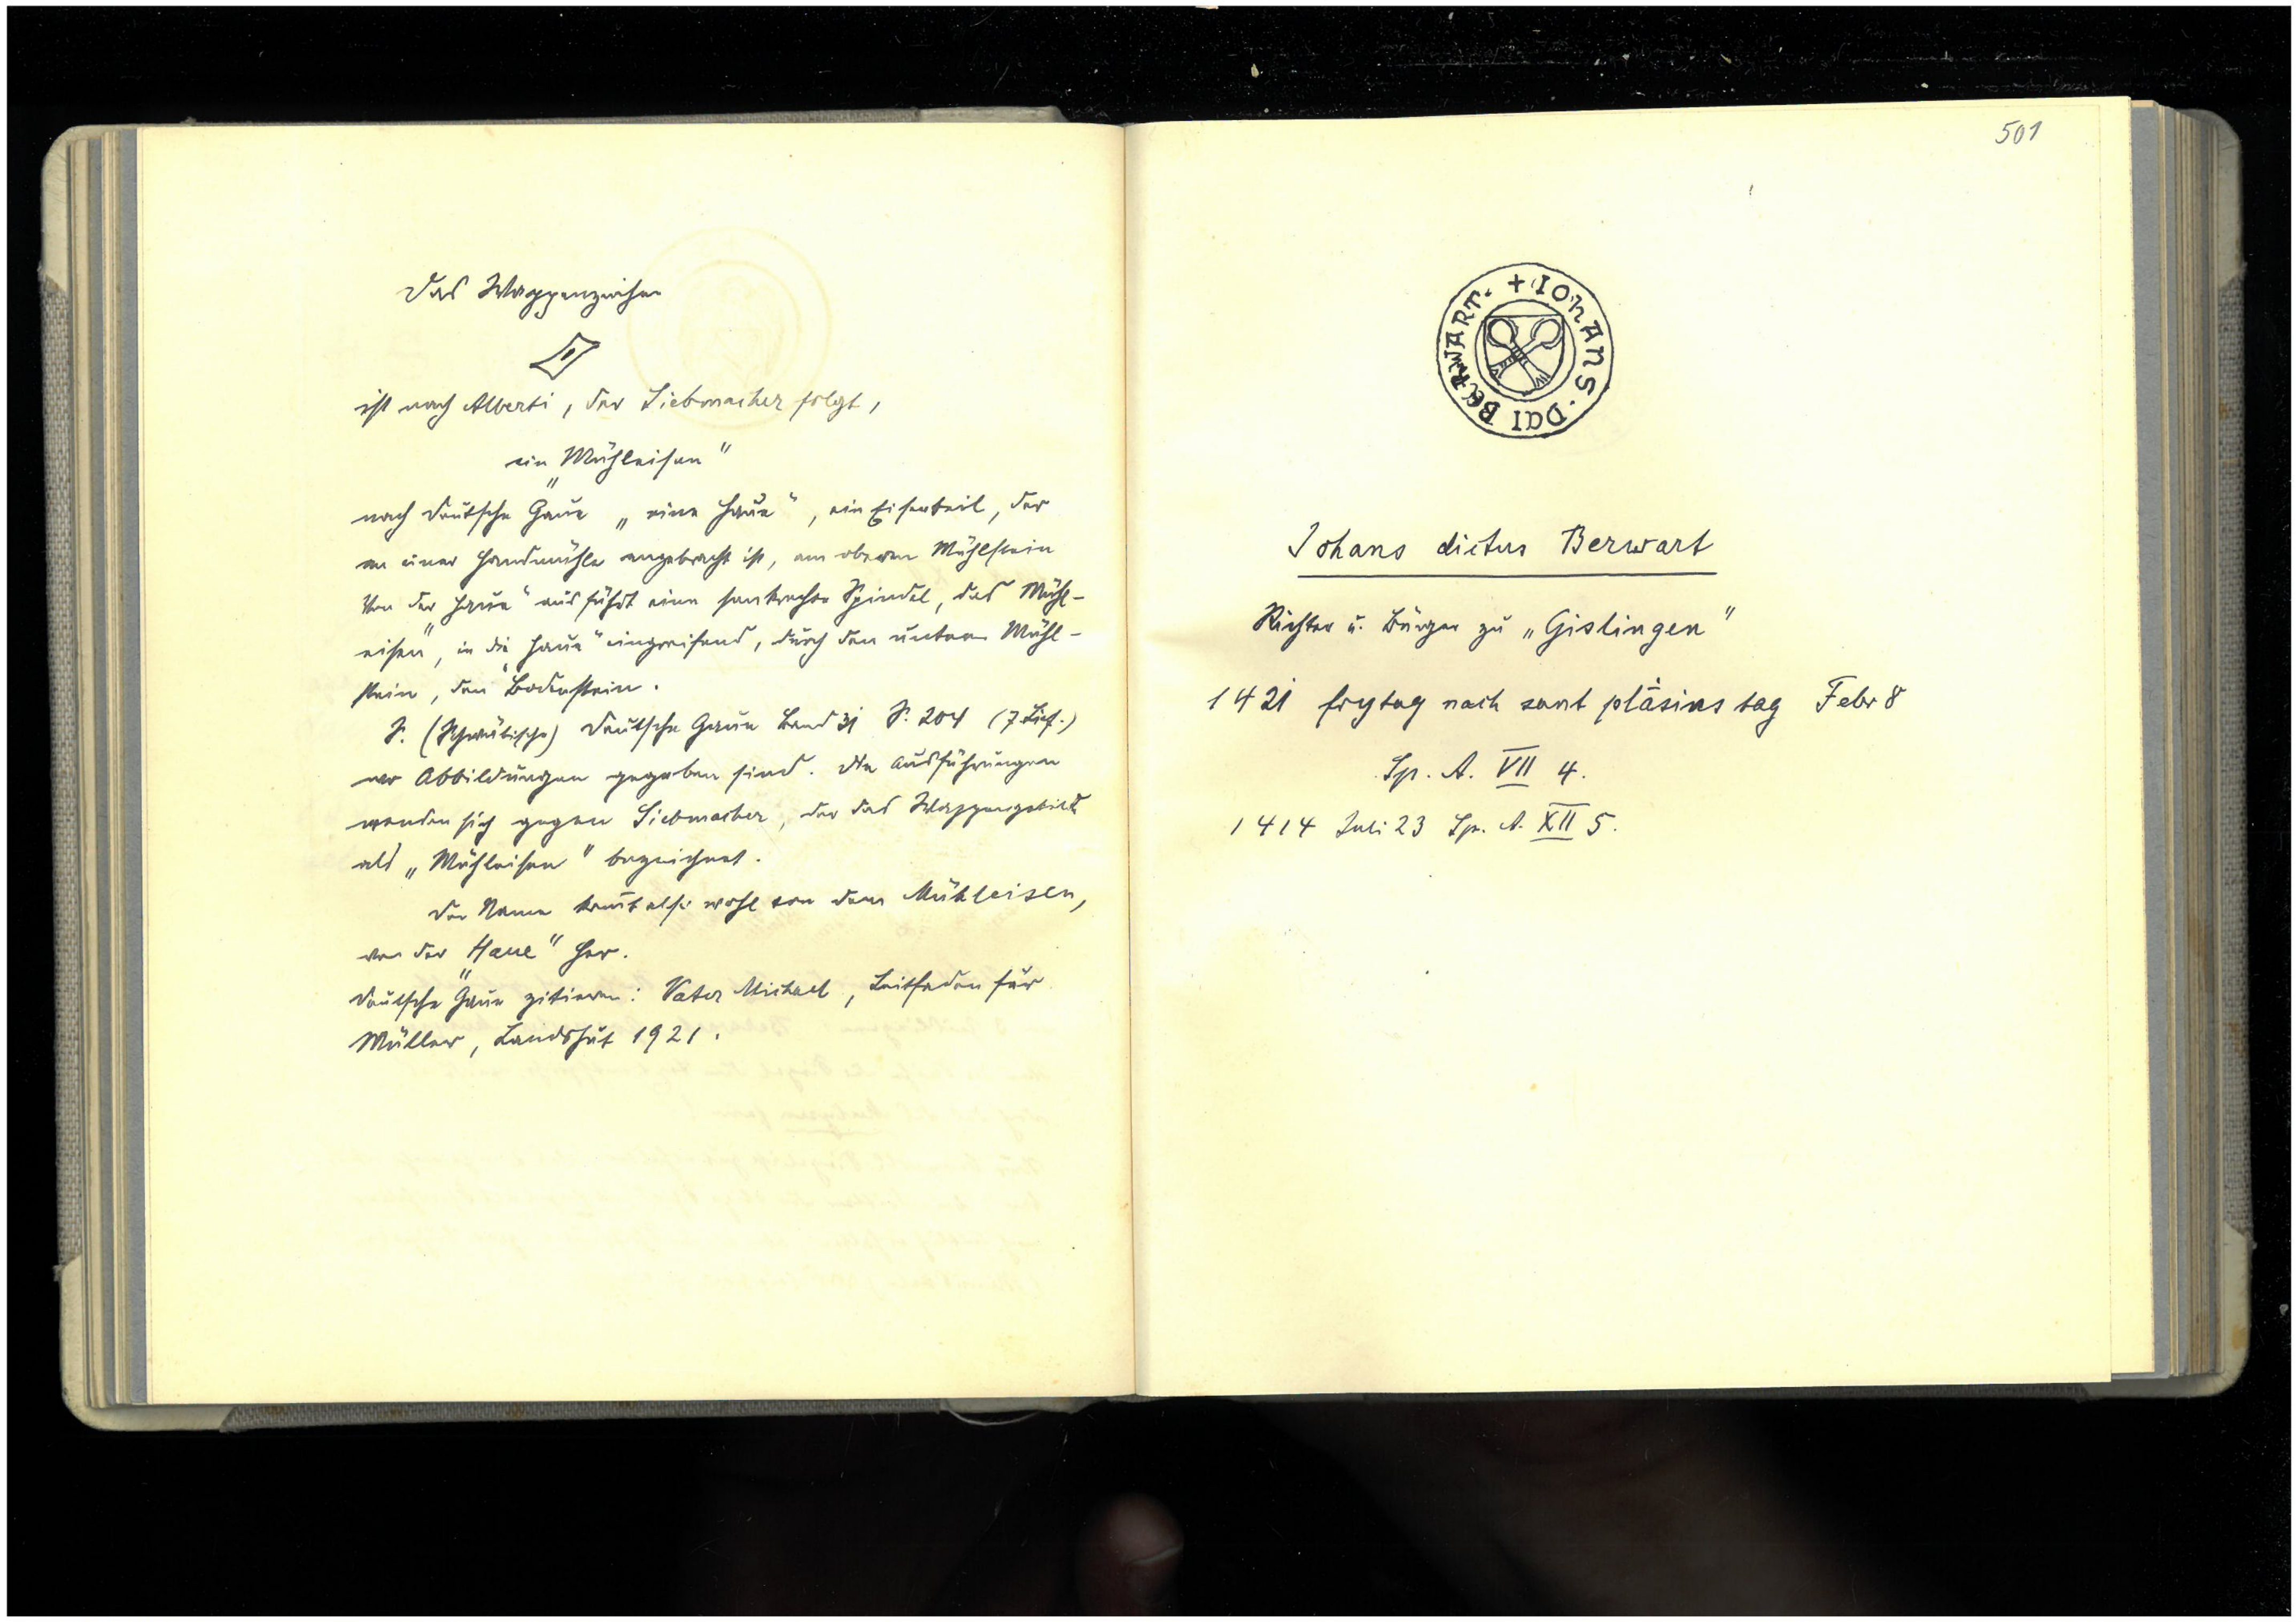 Das Wappenzeichen
ist nach Alberti, der Siebmacher folgt,
ein „Mühleisen"
nach Deutsche Gaue „eine Haue", ein Eisenteil, der
an einer Handmühle angebracht ist, am oberen Mühlstein
Von der „Haue" aus führt eine senkrechte Spindel, das Mühl-
eisen, in die „Haue" eingreifend, durch den unteren Mühl-
stein, den Bodenstein.
S. (Schwäbische) Deutsche Gaue Band 31 S. 204 (7. Lief.)
wo Abbildungen gegeben sind. Die Ausführungen
wenden sich gegen Siebmacher, der das Wappengebild
als „Mühleisen" bezeichnet.
Der Name kommt also wohl von dem Mühleisen,
von der „Haue" her.
Deutsche Gaue zitieren: Vater Michael, Leitfaden für
Müller, Landshut 1921.
501
+ IOHANS · DCI BERWART ·
Johans dictus Berwart
Richter u. Bürger zu „Gislingen"
1421 frytag nach sant pläsins tag Febr 8
Sp. A. VII 4.
1414 Juli 23 Sp. A. XII 5.